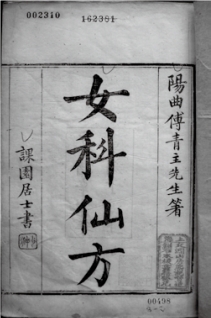 002310
162391
陽曲傅青主先生箸
女科仙方
課園居士書
00498